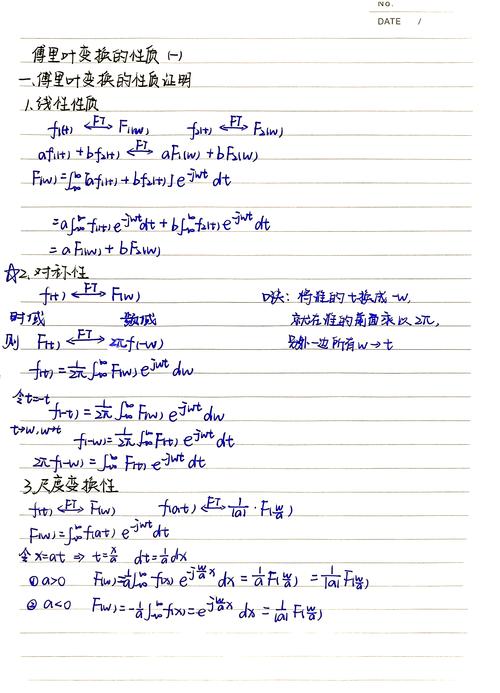 No.
DATE /
傅里叶变换的性质 (一)
一、傅里叶变换的性质证明
1、线性性质
f₁(t) ⟷FT F₁(w) f₂(t) ⟷FT F₂(w)
af₁(t) + bf₂(t) ⟷FT aF₁(w) + bF₂(w)
F(w) = ∫_{-∞}^{∞} [af₁(t) + bf₂(t)] e^{-jwt} dt
= a∫_{-∞}^{∞} f₁(t) e^{-jwt} dt + b∫_{-∞}^{∞} f₂(t) e^{-jwt} dt
= aF₁(w) + bF₂(w)
☆2、对补性
f(t) ⟷FT F(w) 口诀：将谁的t换成-w,
时域 数域 就在谁的前面乘以2π,
则 F(t) ⟷FT 2πf(-w) 另外一边所有w→t
f(t) = 1/2π ∫_{-∞}^{∞} F(w) e^{jwt} dw
令t=-t
f(-t) = 1/2π ∫_{-∞}^{∞} F(w) e^{-jwt} dw
t→w, w→t
f(-w) = 1/2π ∫_{-∞}^{∞} F(t) e^{-jwt} dt
2πf(-w) = ∫_{-∞}^{∞} F(t) e^{-jwt} dt
3、尺度变换性
f(t) ⟷FT F(w) f(at) ⟷FT 1/|a| · F(w/a)
F(w) = ∫_{-∞}^{∞} f(at) e^{-jwt} dt
令 x=at ⇒ t=x/a dt=1/a dx
① a>0 F(w) = 1/a ∫_{-∞}^{∞} f(x) e^{-j(w/a)x} dx = 1/a F(w/a) = 1/|a| F(w/a)
② a<0 F(w) = -1/a ∫_{-∞}^{∞} f(x) = e^{-j(w/a)x} dx = 1/|a| F(w/a)